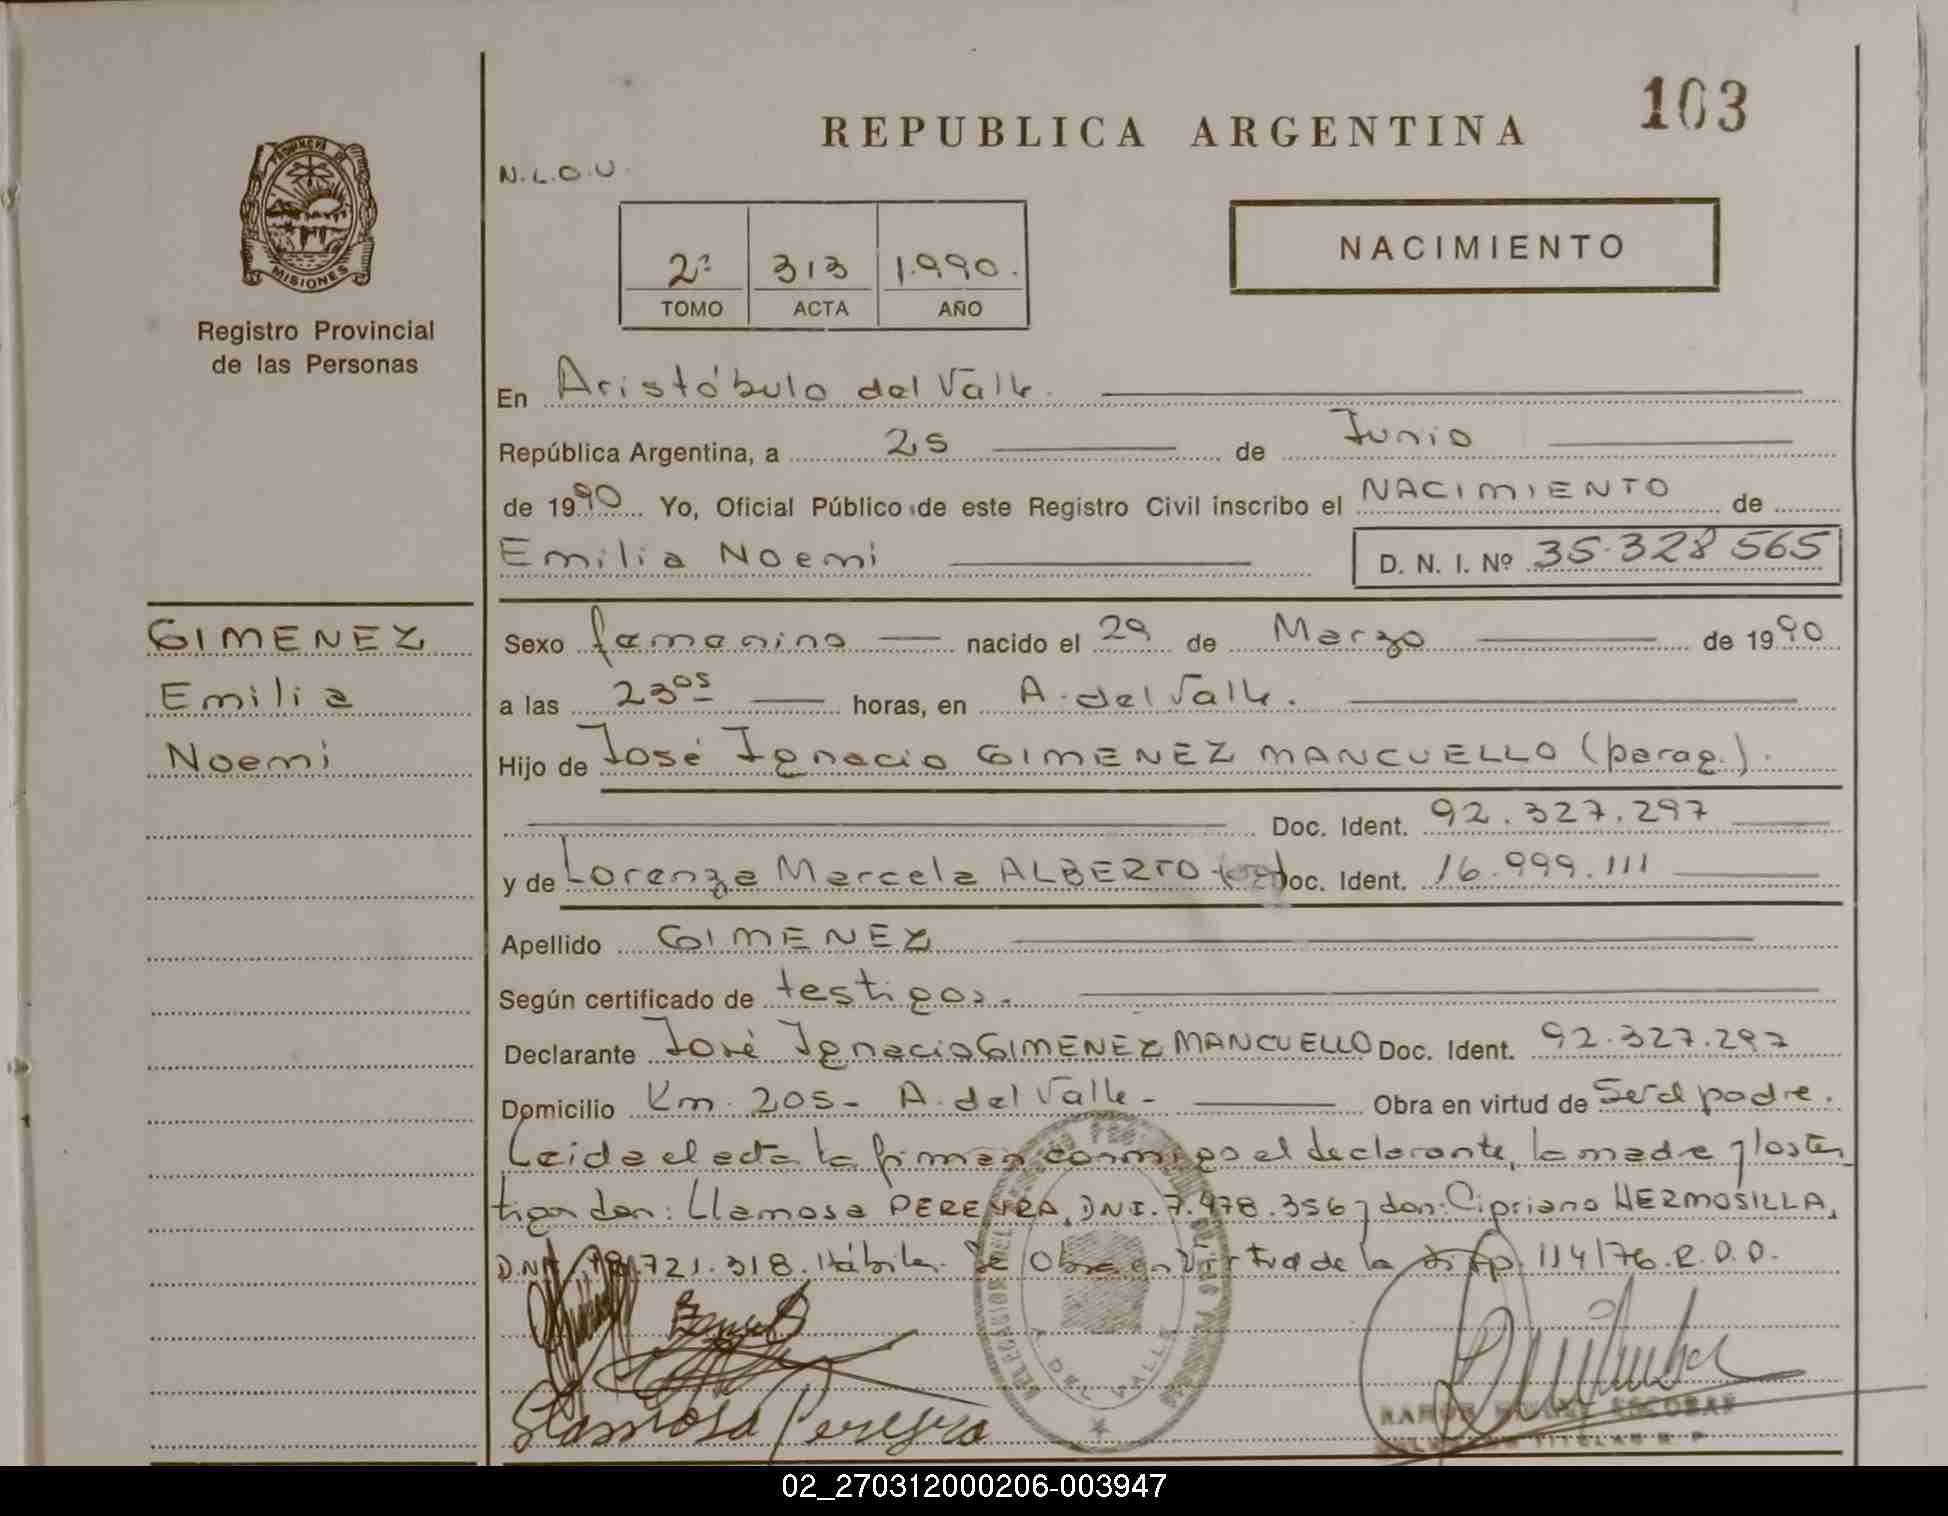 103
REPUBLICA ARGENTINA
N.L.O.U.
PROVINCIA DE
MISIONES
Registro Provincial
de las Personas
2º 313 1.990.
TOMO ACTA AÑO
NACIMIENTO
En Aristóbulo del Valle.
República Argentina, a 25 de Junio
de 1990 Yo, Oficial Público de este Registro Civil inscribo el NACIMIENTO de
Emilia Noemi D. N. I. Nº 35.328 565
GIMENEZ
Emilia
Noemi
Sexo femenino nacido el 29 de Marzo de 1990
a las 23 05 horas, en A. del Valle.
Hijo de José Ignacio GIMENEZ MANCUELLO (parag.).
Doc. Ident. 92.327.297
y de Lorenza Marcela ALBERTO Doc. Ident. 16.999.111
Apellido GIMENEZ
Según certificado de testigos.
Declarante José Ignacio GIMENEZ MANCUELLO Doc. Ident. 92.327.297
Domicilio Km. 205- A. del Valle- Obra en virtud de Ser el padre.
Leida el acta la firman conmigo el declarante, la madre y los tes
tigos don: Llamosa PEREYRA, DNI. 7.478.356 y don: Cipriano HERMOSILLA,
DNI 18.721.318. Hábiles. Se Obra en Virtud de la disp. 114/76.R.P.P.
A. DEL VALLE
Llamosa Pereyra
ESCOBAR
TITULAR R. P.
02_270312000206-003947